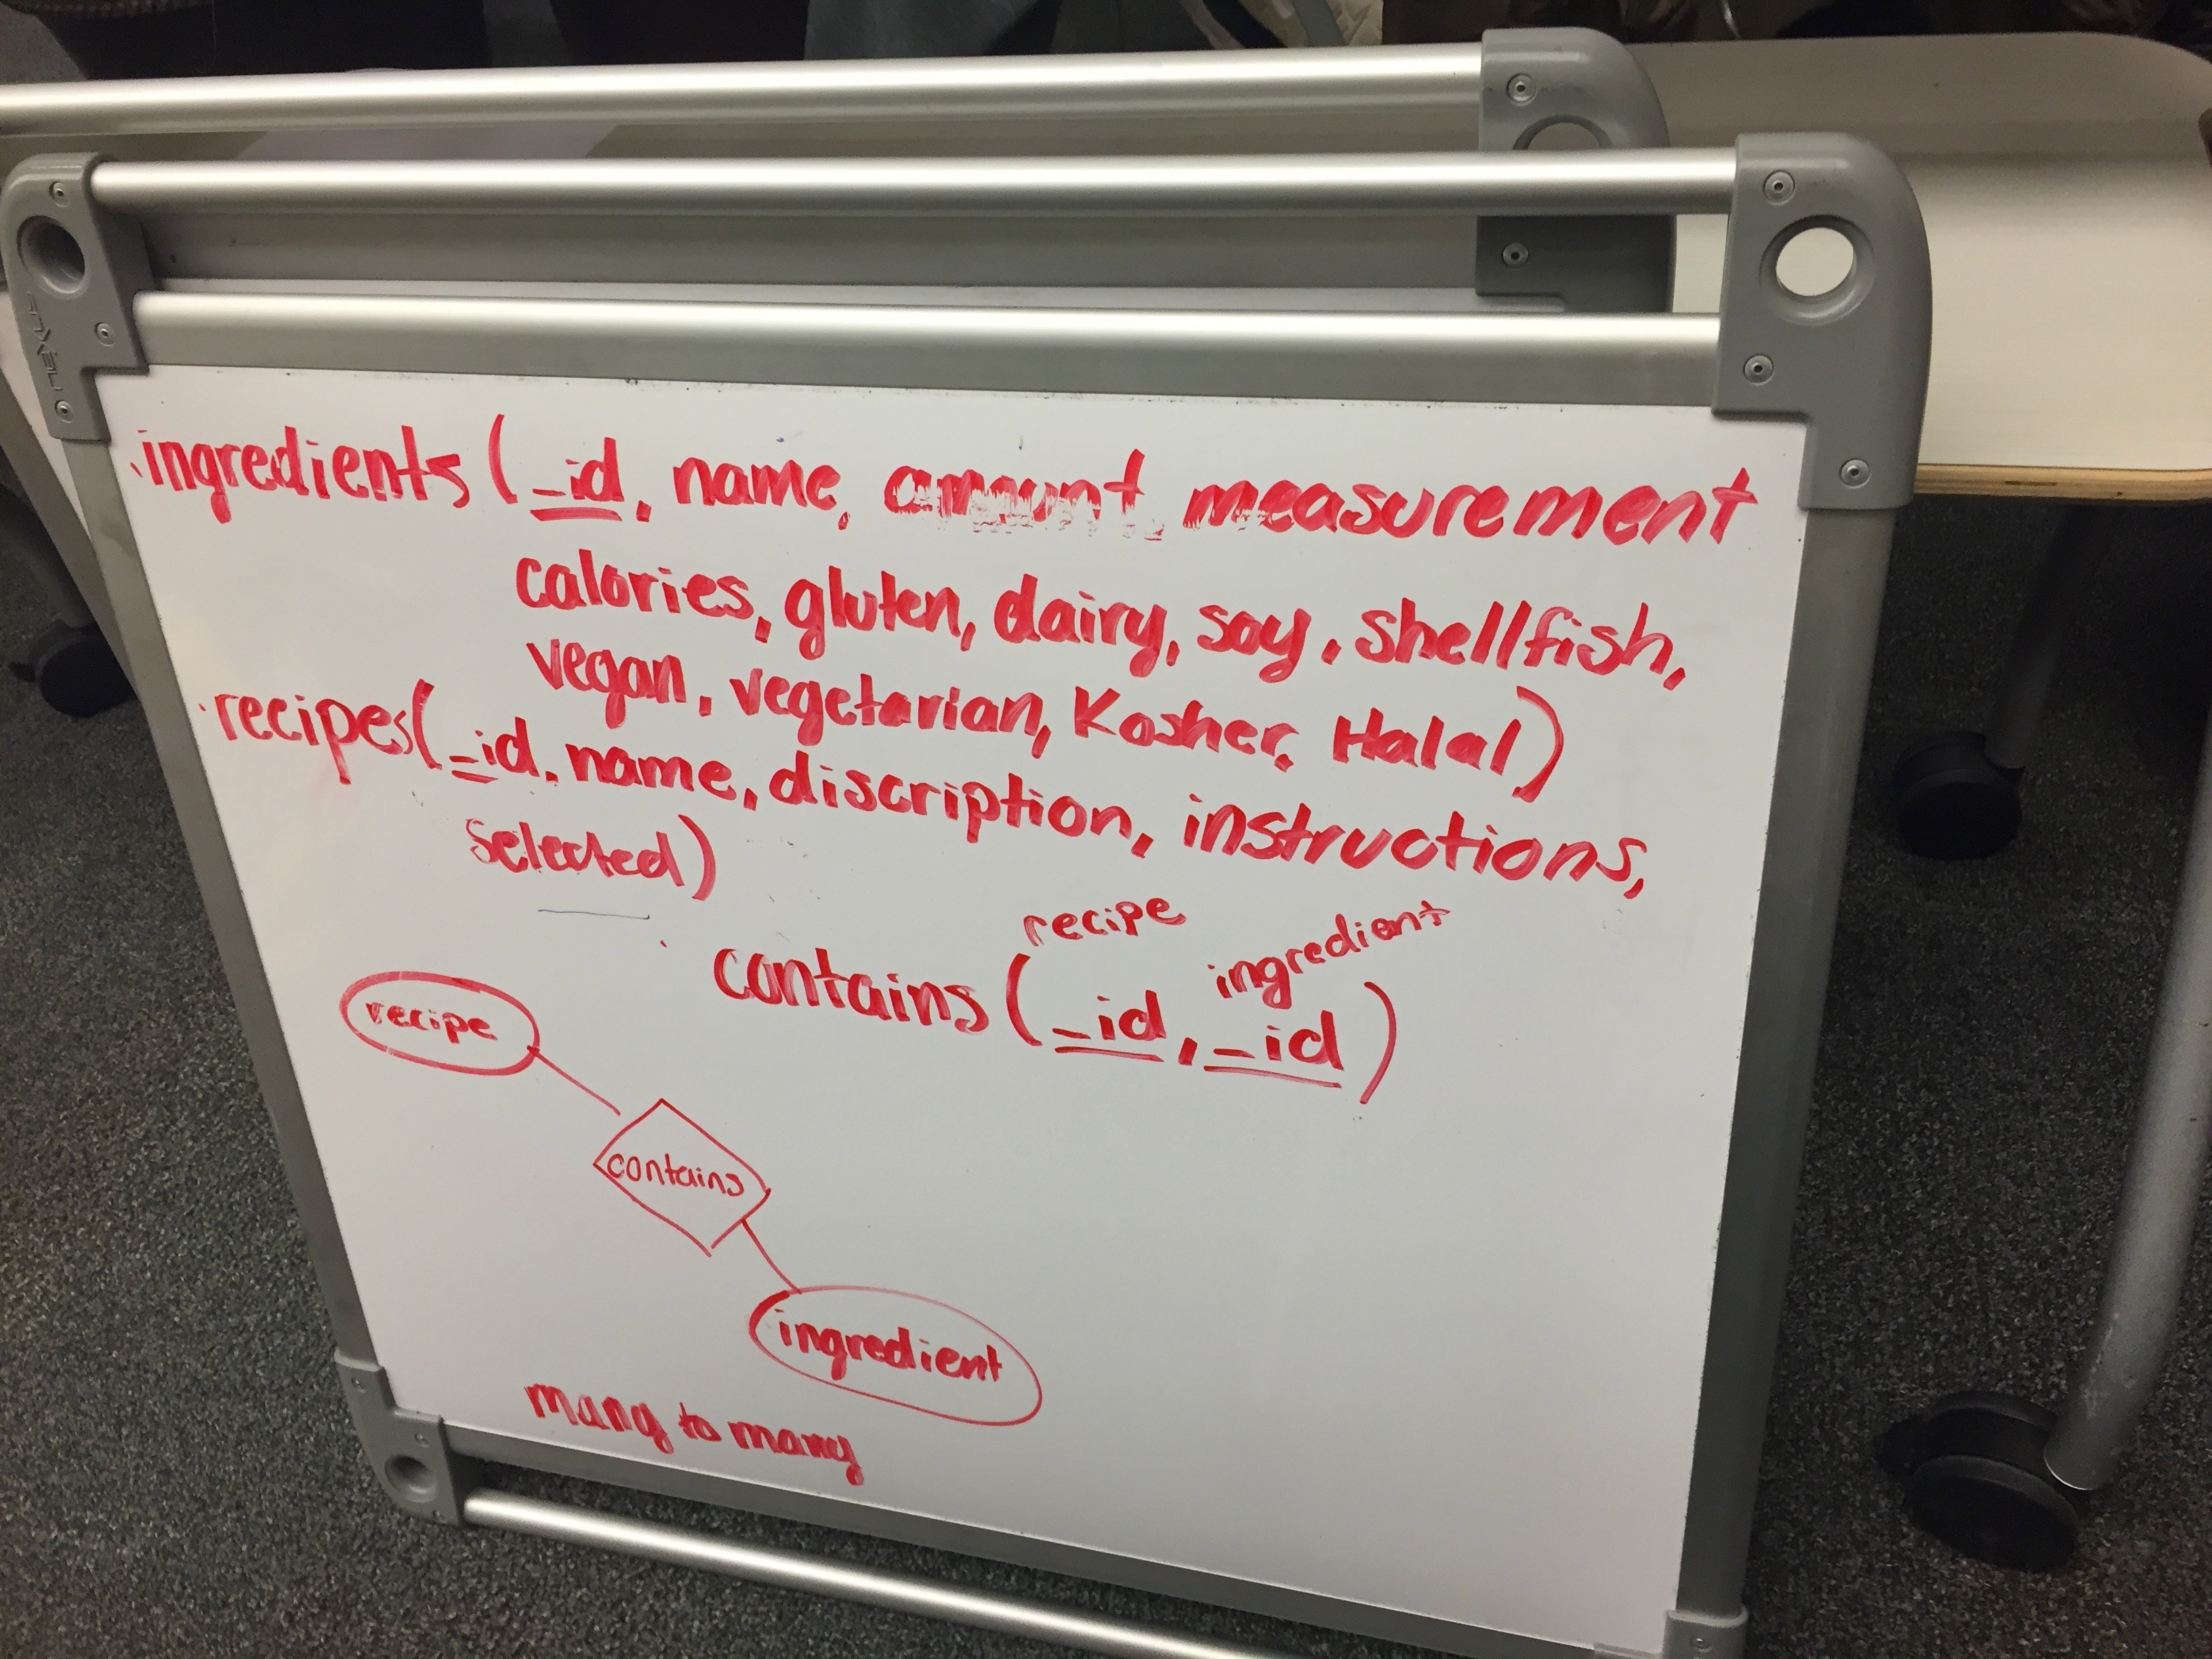 ingredients (_id, name, amount, measurement
calories, gluten, dairy, soy, shellfish,
vegan, vegetarian, Kosher, Halal)
recipes(_id, name, discription, instructions,
selected)
recipe ingredient
contains (_id, _id)
recipe
contains
ingredient
many to many